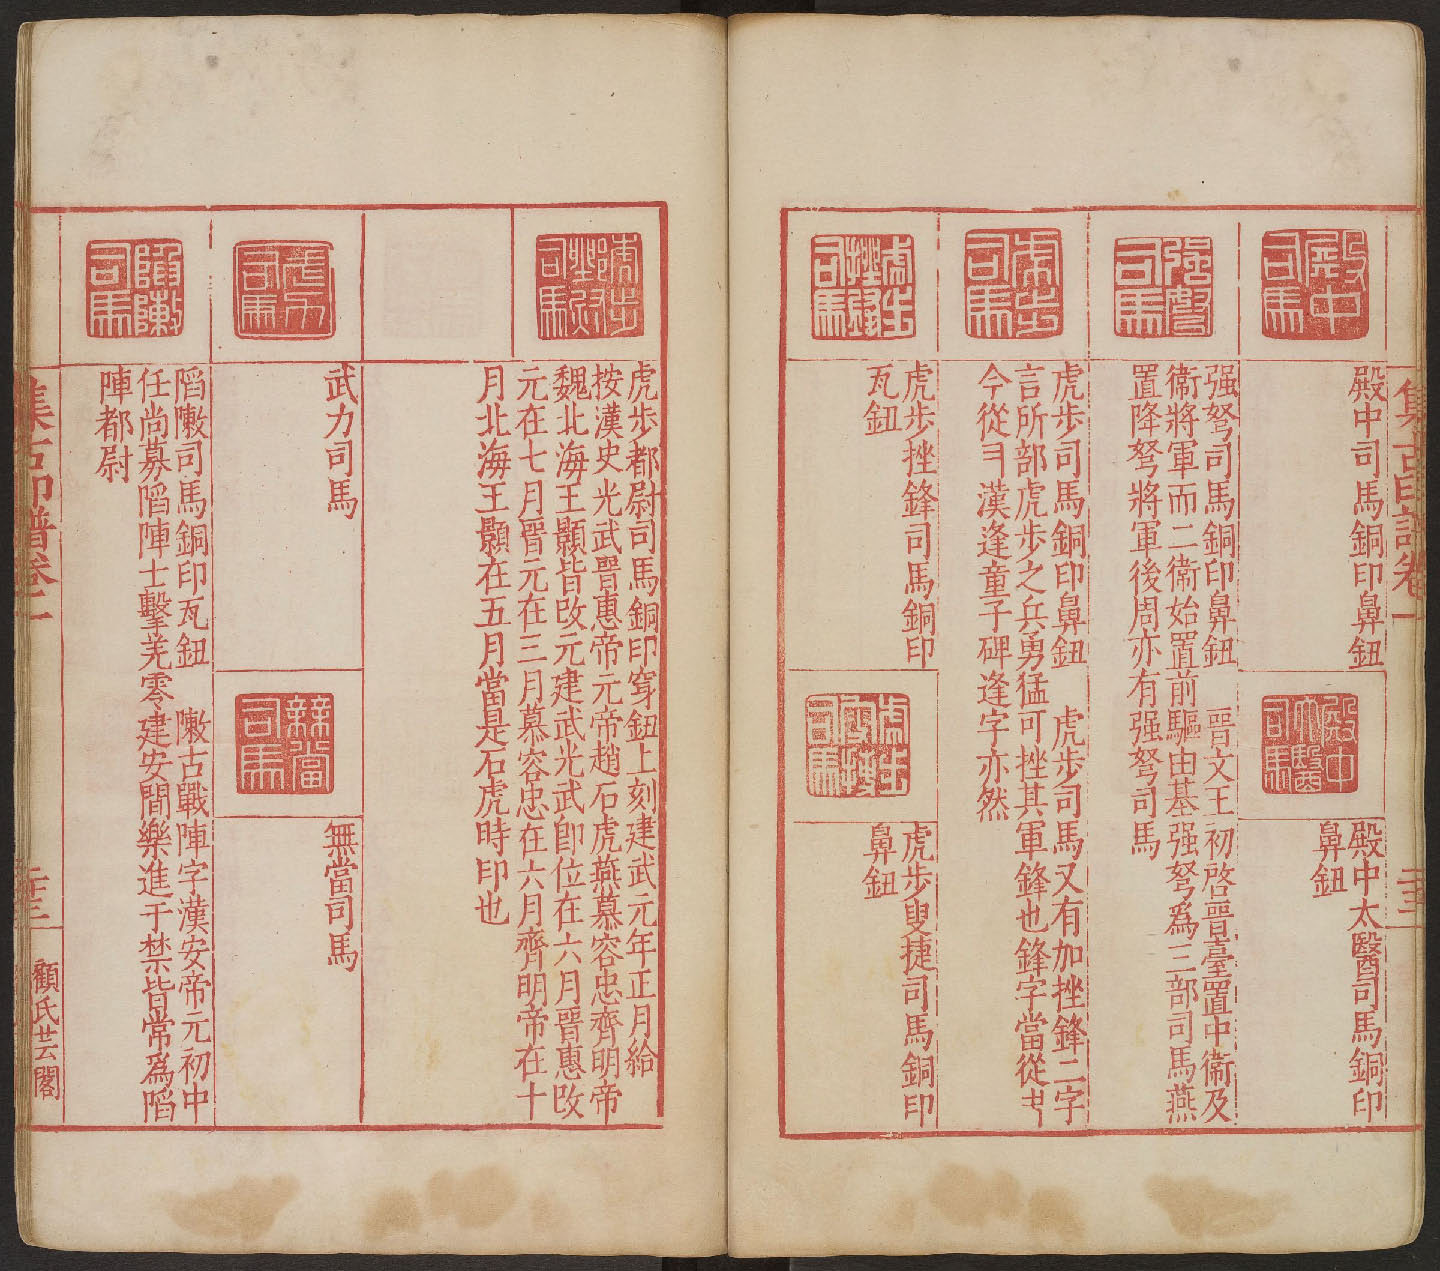 集古印譜卷一
二十二
殿中司馬
殿中司馬銅印鼻鈕
殿中太醫司馬
殿中太醫司馬銅印
鼻鈕
强弩司馬
强弩司馬銅印鼻鈕　晉文王初啓晉臺置中衞及
衞將軍而二衞始置前驅由基强弩爲三部司馬燕
置降弩將軍後周亦有强弩司馬
虎步司馬
虎步司馬銅印鼻鈕　虎步司馬又有加挫鋒二字
言所部虎步之兵勇猛可挫其軍鋒也鋒字當從
今從　漢逢童子碑逢字亦然
虎步挫鋒司馬
虎步挫鋒司馬銅印
瓦鈕
虎步叟捷司馬
虎步叟捷司馬銅印
鼻鈕
虎步司馬
虎步都尉司馬銅印穿鈕上刻建武元年正月給
按漢史光武晉惠帝元帝趙石虎燕慕容忠齊明帝
魏北海王顥皆改元建武光武卽位在六月晉惠改
元在七月晉元在三月慕容忠在六月齊明帝在十
月北海王顥在五月當是石虎時印也
武力司馬
武力司馬
無當司馬
無當司馬
陷敶司馬
陷敶司馬銅印瓦鈕　敶古戰陣字漢安帝元初中
任尚募陷陣士擊羌零建安間樂進于禁皆常爲陷
陣都尉
集古印譜卷一
二十三
顧氏芸閣